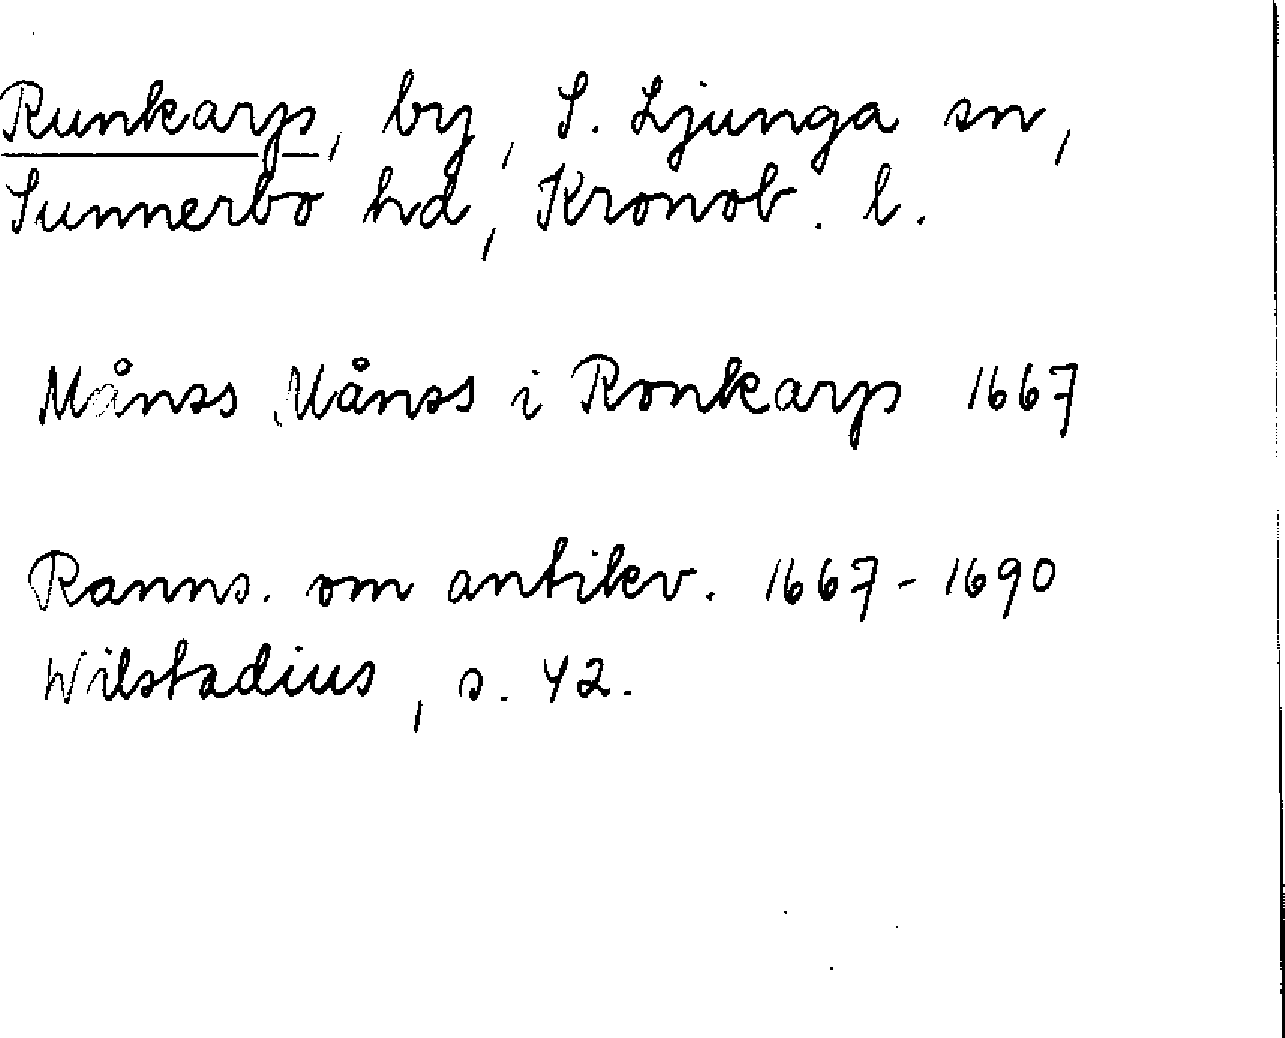 Runkarp, by, S. Ljunga sn,
Sunnerbo hd, Kronob. l.
Månss Månss i Ronkarp 1667
Ranns. om antikv. 1667-1690
Wilstadius, s. 42.